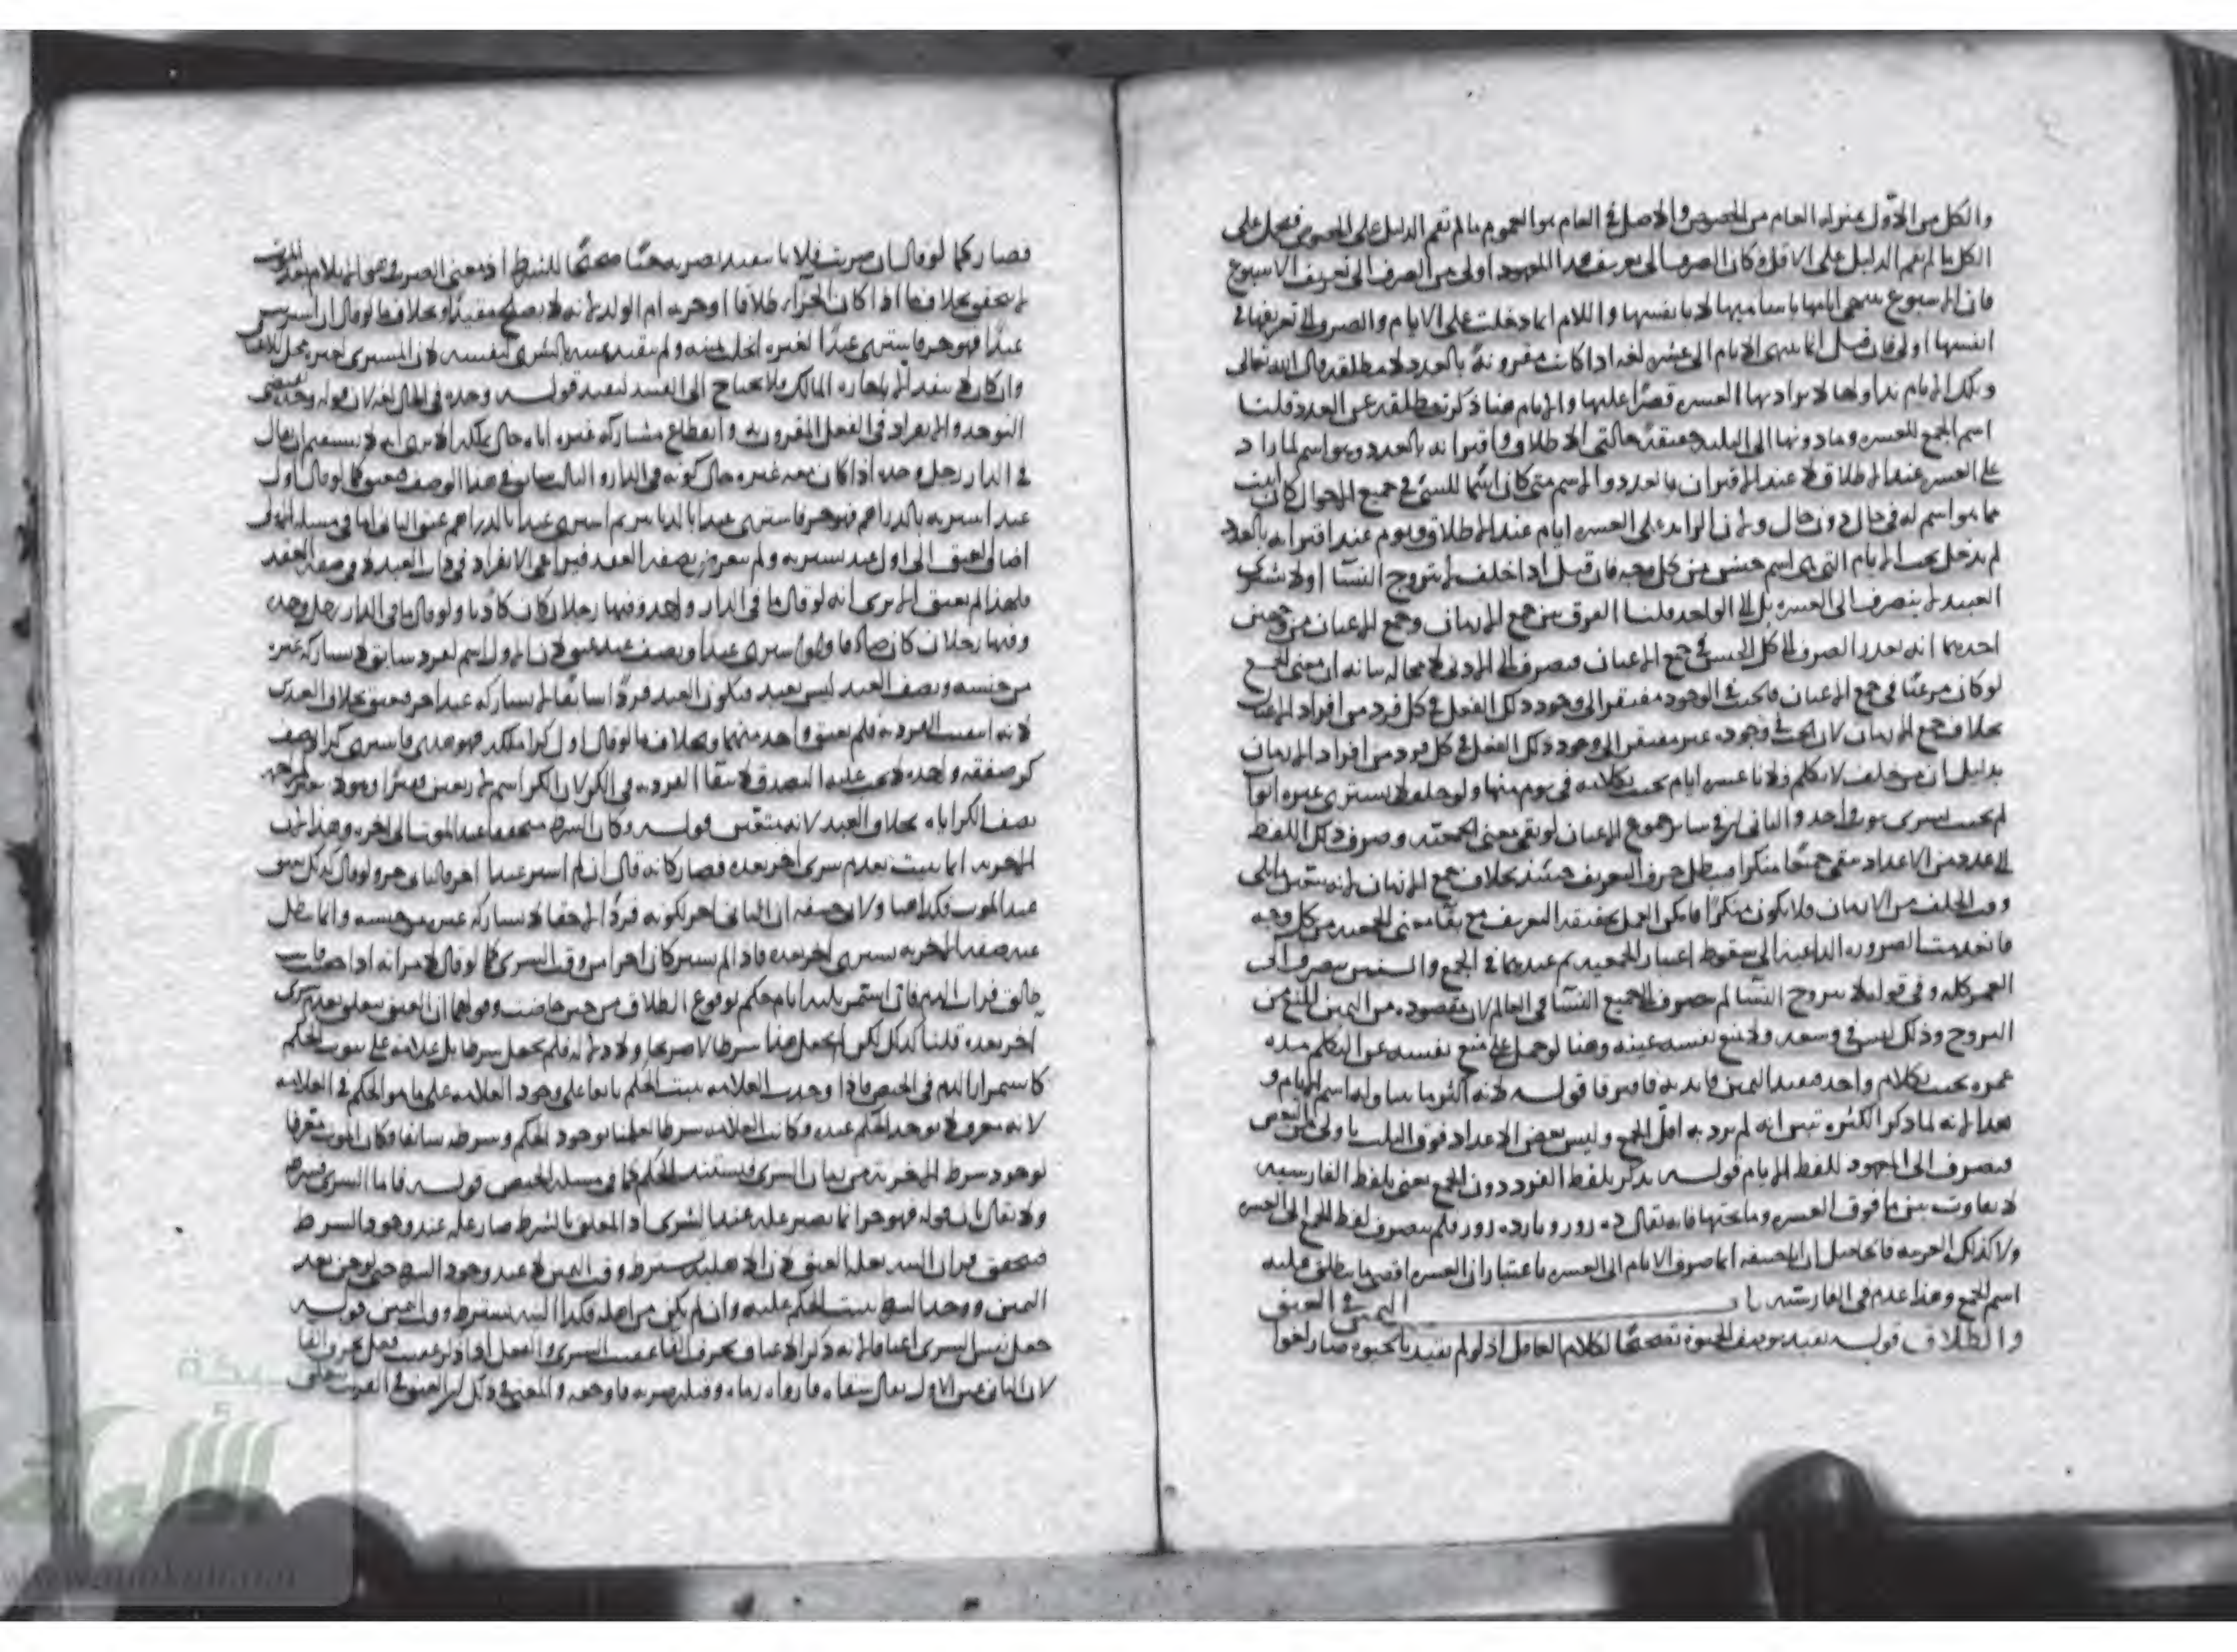 والكل من الأول بمنزلة العام من الخصوص والأصل في العام هو العموم ما لم تقم الدليل على الخصوص فيحمل على
الكل ما لم تقم الدليل على الاقل وكان الصرف الى تعريف هذا المعهود اولى من الصرف الى تعريف الاسبوع
فان الاسبوع ايامها باساميها لا بانفسها واللام انما دخلت على الايام والصرف الى تعريفها في
انفسها اولى فان قيل انما الايام الى عشرة لغة اذا كانت مقرونة بالعدد لا مطلقة قال الله تعالى
وتلك الايام نداولها لا يراد بها العشرة قصرا عليها والايام هنا ذكرت مطلقة عن العدد قلنا
اسم الجمع للعشرة وما دونها الى الثلثة حقيقة حالتي الاطلاق واقترانه بالعدد وهو اسم لما زاد
على العشر عند الاطلاق لا عند الاقتران بالعدد والاسم متى كان اسما للشئ في جميع الاحوال كان اثبت
مما هو اسم له في حال دون حال ولان الزايد على العشرة ايام عند الاطلاق ويوم عند اقترانه بالعدد
لم يدخل تحت الايام التي هي اسم جنس من كل وجه فان قيل اذا حلف لا يتزوج النسا او لا يشتري
العبيد لا ينصرف الى العشرة بل الى الواحد قلنا الفرق بين جمع الازمان وجمع الاعيان من وجهين
احدهما انه تعذر الصرف الى كل الجنس في جمع الاعيان فيصرف الى الادنى لا محالة بيانه ان معنى الجمع
لو كان مرعيا في جمع الاعيان فالحنث في الوجود مفتقر الى وجود ذلك الفعل في كل فرد من افراد الاعيان
بخلاف جمع الازمان لان الحنث في وجوده غير مفتقر الى وجود ذلك الفعل في كل فرد من افراد الازمان
بدليل ان من حلف لا يكلم فلانا عشرة ايام يحنث بكلامه في يوم منها ولو حلف لا يشتري عشرة اثواب
لم يحنث بشرى ثوب واحد والثاني ان في ساير جموع الاعيان لو بقي معنى الجمعية وصرف ذلك اللفظ
الى عدد من الاعداد بقي جمعا منكرا فيبطل حرف التعريف حينئذ بخلاف جمع الازمان لانه يتعين ما يلي
وقت الحلف من الازمان فلا يكون منكرا فامكن العمل بحقيقة التعريف مع بقا معنى الجمعية من كل وجه
فانعدمت الضرورة الداعية الى سقوط اعتبار الجمعية ثم عندهما في الجمع والسنين ينصرف الى
العمر كله وفي قوله لا يتزوج النسا لم ينصرف الى جميع النسا في العالم لان مقصوده من اليمين المنع من
التزوج وذلك ليس في وسعه ولا يمنع نفسه عنه وهنا لو حمل على منع نفسه عن التكلم مدة
عمره يحنث بكلام واحد فيفيد اليمين فايدته فافترقا قوله لانه اكثر ما يتناوله اسم الايام و
هذا لانه لما ذكر الكثرة تبين انه لم يرد به اقل الجمع وليس بعض الاعداد فوق الثلث باولى من البعض
فيصرف الى المعهود للفظ الايام قوله يذكر بلفظ الفرد دون الجمع يعني بلفظ الفارسية
لا يتفاوت بين ما فوق العشرة وما تحتها فانه يقال ده روز ويازده روز فلم ينصرف لفظ الجمع الى العشر
ولا كذلك العربية فالحاصل ان ابا حنيفة انما صرف الايام الى العشرة باعتبار ان العشرة اقصى ما ينطلق عليه
اسم الجمع وهذا عدم في الفارسية باب اليمين في العتق
والطلاق قوله تقيد بوصف الحيوة تصحيحا لكلام العاقل اذ لو لم تقيد بالحيوة صار لغوا
فصار كما لو قال ان ضربت فلانا
لا يتحقق بخلاف ما اذا كان الجزاء طلاقا او حرية ام الولد لانه لا يصلح مقيدا وبخلاف ما لو قال ان اشتريت
عبدا فهو حر فاشترى عبدا لغيره انحلت يمينه ولم تتقيد يمينه بالشرى لنفسه لان المشترى لغيره محل للاعتاق
وان كان لا ينفذ الا باجازة المالك ولا يحتاج الى التقييد قوله وحده في الحال لغة لان قوله وحده يقتضي
التوحد والانفراد في الفعل المقرون به وانقطاع مشاركة غيره اياه حال تملكه الا ترى انه لا يستقيم ان يقال
في الدار رجل وحده اذا كان معه غيره حال كونه في الدار والثالث سابق في هذا الوصف فيعتق كما لو قال اول
عبد اشتريه بالدراهم فهو حر فاشترى عبدا بالدنانير ثم اشترى عبدا بالدراهم عتق الثاني اما في مسئلة الاولى
اضاف العتق الى اول عبد يشتريه ولم يتعرض بصفة العقد فيراعى الانفراد في ذات العبد لا في صفة العقد
فلهذا لم يعتق الا ترى انه لو قال ما في الدار رجل واحد وفيها رجلان كان كاذبا ولو قال ما في الدار رجل وحده
وفيها رجلان كان صادقا ولو اشترى عبدا ونصف عبد عتق لان الاول اسم لفرد سابق لا يشاركه غيره
من جنسه ونصف العبد ليس بعبد فيكون العبد فردا سابقا لم يشاركه عبد اخر فيعتق بخلاف العبدين
لانه انتفت الفردية فلم يعتق واحد منهما وبخلاف ما لو قال اول كر املكه فهو هدي فاشترى كرا ونصف
كر صفقة واحدة لا يجب عليه التصدق لانتفا الفردية في الكر لان الكر اسم لاربعين قفيزا
نصف الكر اياه بخلاف العبد لانه قوله وكان الشرط متحققا عند الموت الى اخره وهذا لان
الاخرية انما يثبت بعدم شرى اخر بعده فصار كانه قال ان لم اشتر عبدا اخر فالثاني حر ولو قال كذلك يعتق
عند الموت فكذا هنا ولابي حنيفة ان الثاني اخر لكونه فردا لاحقا لا يشاركه غيره من جنسه وانما يبطل
عنه صفة الاخرية بشرى اخر بعده فاذا لم يشتر كان اخرا من وقت الشرى كما لو قال لامراته اذا حضت فانت
طالق فرات الدم فان استمر ثلثة ايام حكم بوقوع الطلاق من حين حاضت وقولهما ان العتق معلق بعدم شرى
اخر بعده قلنا كذلك لكن لم يجعل هذا شرطا لا صريحا ولا دلالة فلم يجعل شرطا بل علامة على ثبوت الحكم
كاستمرار الدم في الحيض فاذا وجدت العلامة يثبت الحكم سابقا على وجود العلامة على ما هو الحكم في العلامة
لانه معرف لا يوجد الحكم عنده وكانت العلامة شرطا لعلمنا بوجود الحكم وشرطه سابقا وكان الموت معرفا
لوجود شرط الاخرية من زمان الشرى فيستند الحكم كما في مسئلة الحيض قوله فاما الشرى فشرط
ولا يقال بان قوله فهو حر انما يصير علة عند الشرى اذ المعلق بالشرط صار علة عند وجود الشرط
فيتحقق قران النية بعلة العتق لان الاهلية يشترط وقت اليمين لا عند وجود الشرط حتى لو جن بعد
اليمين ووجد الشرط يثبت الحكم عليه وان لم يكن من اهله فكذا النية يشترط وقت اليمين قوله
جعل نفس الشرى اعتاقا لانه ذكر الاعتاق بحرف الفا عقيب الشرى والفعل اذا ذكر عقيب فعل بحرف الفا
لان الثاني عين الاول يقال سقاه فارواه رماه وقتله ضربه فاوجعه والمعنى في ذلك ان العتق في القريب